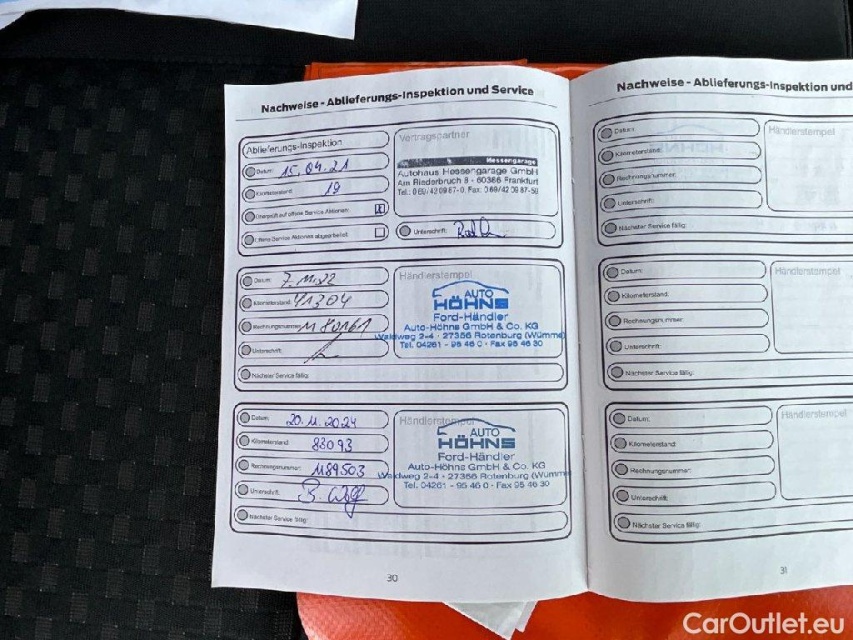 Nachweise - Ablieferungs-Inspektion und Service
Ablieferungs-Inspektion
Datum: 15.04.21
Kilometerstand: 19
Überprüft auf offene Service Aktionen:
Offene Service Aktionen abgearbeitet:
Vertragspartner
Hessengarage
Autohaus Hessengarage GmbH
Am Riederbruch 8 - 60386 Frankfurt
Tel.: 069/42 09 87-0, Fax: 069/42 09 87-59
Unterschrift:
Datum: 7.11.22
Kilometerstand: 41304
Rechnungsnummer: 1180161
Unterschrift:
Nächster Service fällig:
Händlerstempel
AUTO
HÖHNS
Ford-Händler
Auto-Höhns GmbH & Co. KG
Waldweg 2-4 · 27356 Rotenburg (Wümme)
Tel. 04261 - 95 46 0 · Fax 95 46 30
Datum: 20.11.2024
Kilometerstand: 83093
Rechnungsnummer: 1189503
Unterschrift:
Nächster Service fällig:
Händlerstempel
AUTO
HÖHNS
Ford-Händler
Auto-Höhns GmbH & Co. KG
Waldweg 2-4 · 27356 Rotenburg (Wümm
Tel. 04261 - 95 46 0 · Fax 95 46 30
30
Nachweise - Ablieferungs-Inspektion und
Datum:
Kilometerstand:
Rechnungsnummer:
Unterschrift:
Nächster Service fällig:
Händlerstempel
Datum:
Kilometerstand:
Rechnungsnummer:
Unterschrift:
Nächster Service fällig:
Händlerstempel
Datum:
Kilometerstand:
Rechnungsnummer:
Unterschrift:
Nächster Service fällig:
Händlerstempel
31
CarOutlet.eu